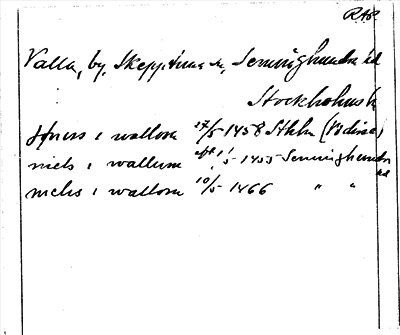 RAP.
Valla, by, Skepptuna sn, Seminghundra hd
Stockholms l.
i wallom 27/5 1458 Sthlm
niels i wallum 1/5 1455 Seminghundra hd
niels i wallom 10/5 1466 " "